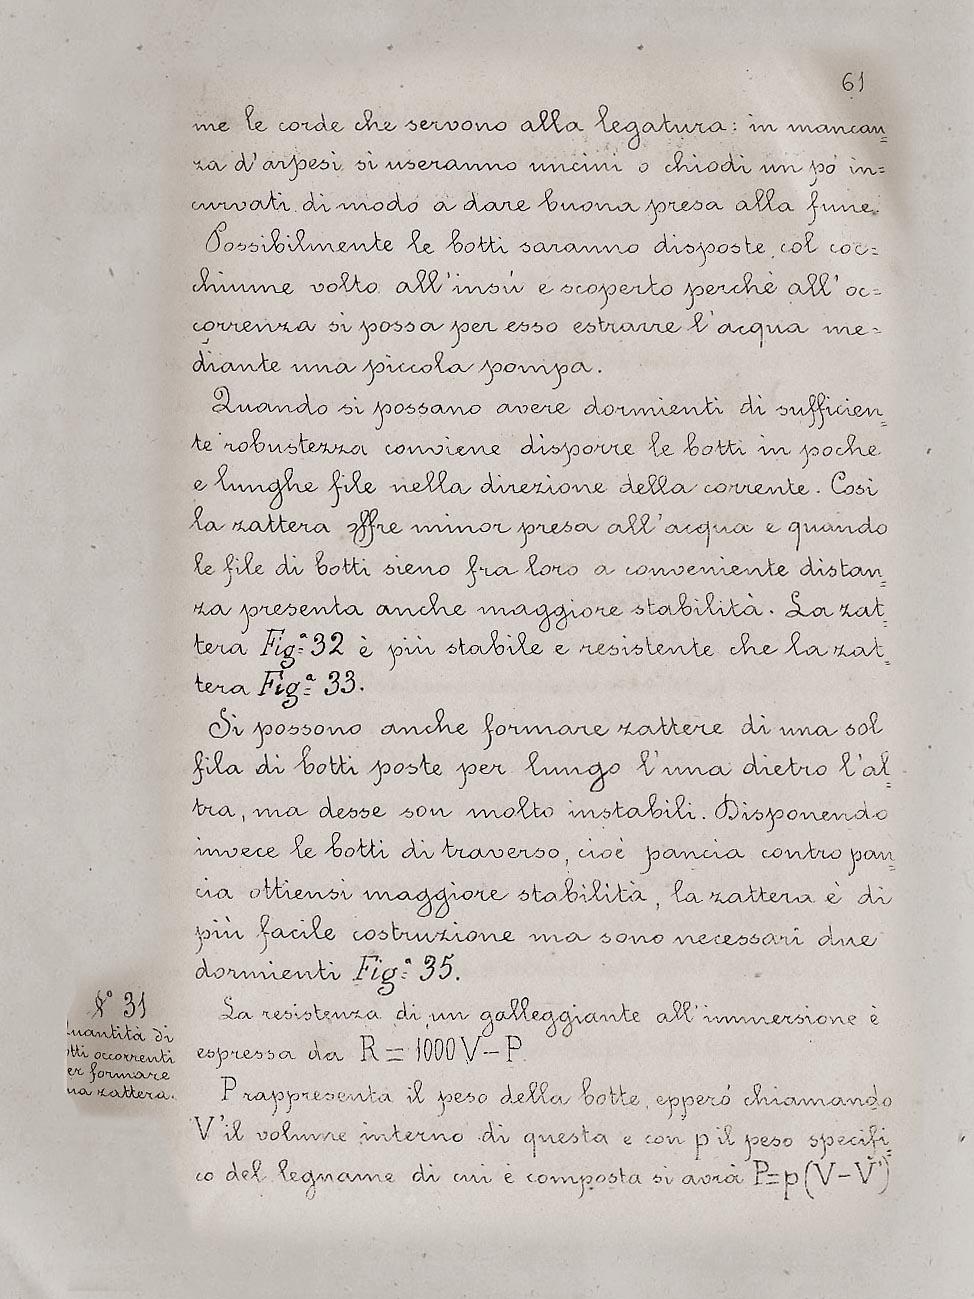 61
me le corde che servono alla legatura: in mancan=
za d'arpesi si useranno uncini o chiodi un pó in=
curvati di modo a dare buona presa alla fune.
Possibilmente le botti saranno disposte col coc=
chiume volto all'insú e scoperto perchè all'oc=
correnza si possa per esso estrarre l'acqua me=
diante una piccola pompa.
Quando si possano avere dormienti di sufficien=
te robustezza conviene disporre le botti in poche
e lunghe file nella direzione della corrente. Cosi
la zattera offre minor presa all'acqua e quando
le file di botti sieno fra loro a conveniente distan=
za presenta anche maggiore stabilità. La zat=
tera Fig.ª 32 è più stabile e resistente che la zat=
tera Fig.ª 33.
Si possono anche formare zattere di una sol
fila di botti poste per lungo l'una dietro l'al=
tra, ma desse son molto instabili. Disponendo
invece le botti di traverso, cioè pancia contro pan=
cia ottiensi maggiore stabilità, la zattera è di
più facile costruzione ma sono necessari due
dormienti Fig.ª 35.
N° 31
uantità di
otti occorrenti
er formare
na zattera.
La resistenza di un galleggiante all'immersione è
espressa da R = 1000 V - P.
P rappresenta il peso della botte, epperó chiamando
V' il volume interno di questa e con p il peso specifi=
co del legname di cui è composta si avrà P=p(V-V')